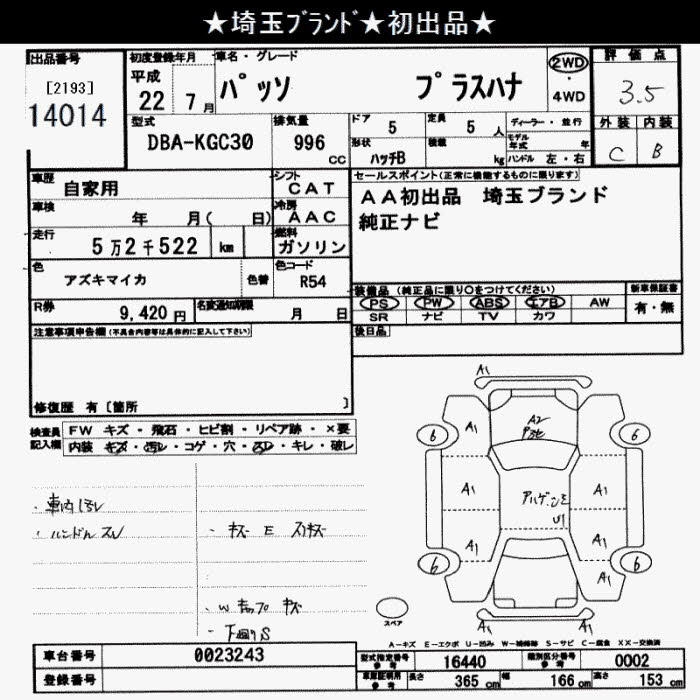 ★埼玉ﾌﾞﾗﾝﾄﾞ★初出品★
出品番号
[2193]
14014
初度登録年月
平成
22 7月
車名・グレード
パッソ プラスハナ
2WD
・
4WD
評価点
3.5
外装 内装
C B
型式
DBA-KGC30
排気量
996
CC
ドア 5
定員 5 人
形状 ハッチB
積載 kg
ディーラー・並行
モデル年式 年
ハンドル 左・右
車歴 自家用
シフト CAT
車検 年 月( 日)
冷房 AAC
走行 5万2千522 km
燃料 ガソリン
色 アズキマイカ 色替
色コード R54
R券 9,420円
名変通知期限 月 日
セールスポイント(正常に機能するものに限ります)
AA初出品 埼玉ブランド
純正ナビ
装備品 (純正品に限り○をつけてください)
新車保証書
PS PW ABS エアB AW
有・無
SR ナビ TV カワ
後日品
注意事項申告欄(不具合内容等は具体的に記入して下さい)
修復歴 有〔箇所 〕
検査員記入欄
FW キズ・飛石・ヒビ割・リペア跡・×要
内装 キズ・汚レ・コゲ・穴・スレ・キレ・破レ
・車内汚レ
・ハンドルスレ
・キズ E スリキズ
・下廻りS
A1
A1
A2
A1
A1
A1
A1
A1
U1
A1
A1
A1
6
6
6
6
スペア
A-キズ E-エクボ U-凹み W-補修跡 S-サビ C-腐食 XX-交換済
車台番号 0023243
登録番号
型式指定番号参考 16440
類別区分番号参考 0002
車庫証明用参考 長さ 365 cm 幅 166 cm 高さ 153 cm